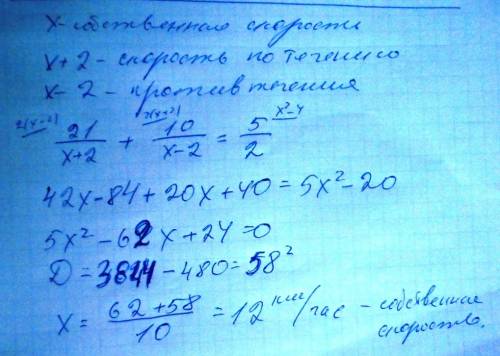 x - собственная скорость
x+2 - скорость по течению
x-2 - против течения
2(x-2) 2(x+2) x²-4
21/(x+2) + 10/(x-2) = 5/2
42x-84+20x+40=5x²-20
5x²-62x+24=0
D=3844-480=58²
x = (62+58)/10 = 12 км/час - собственная скорость.